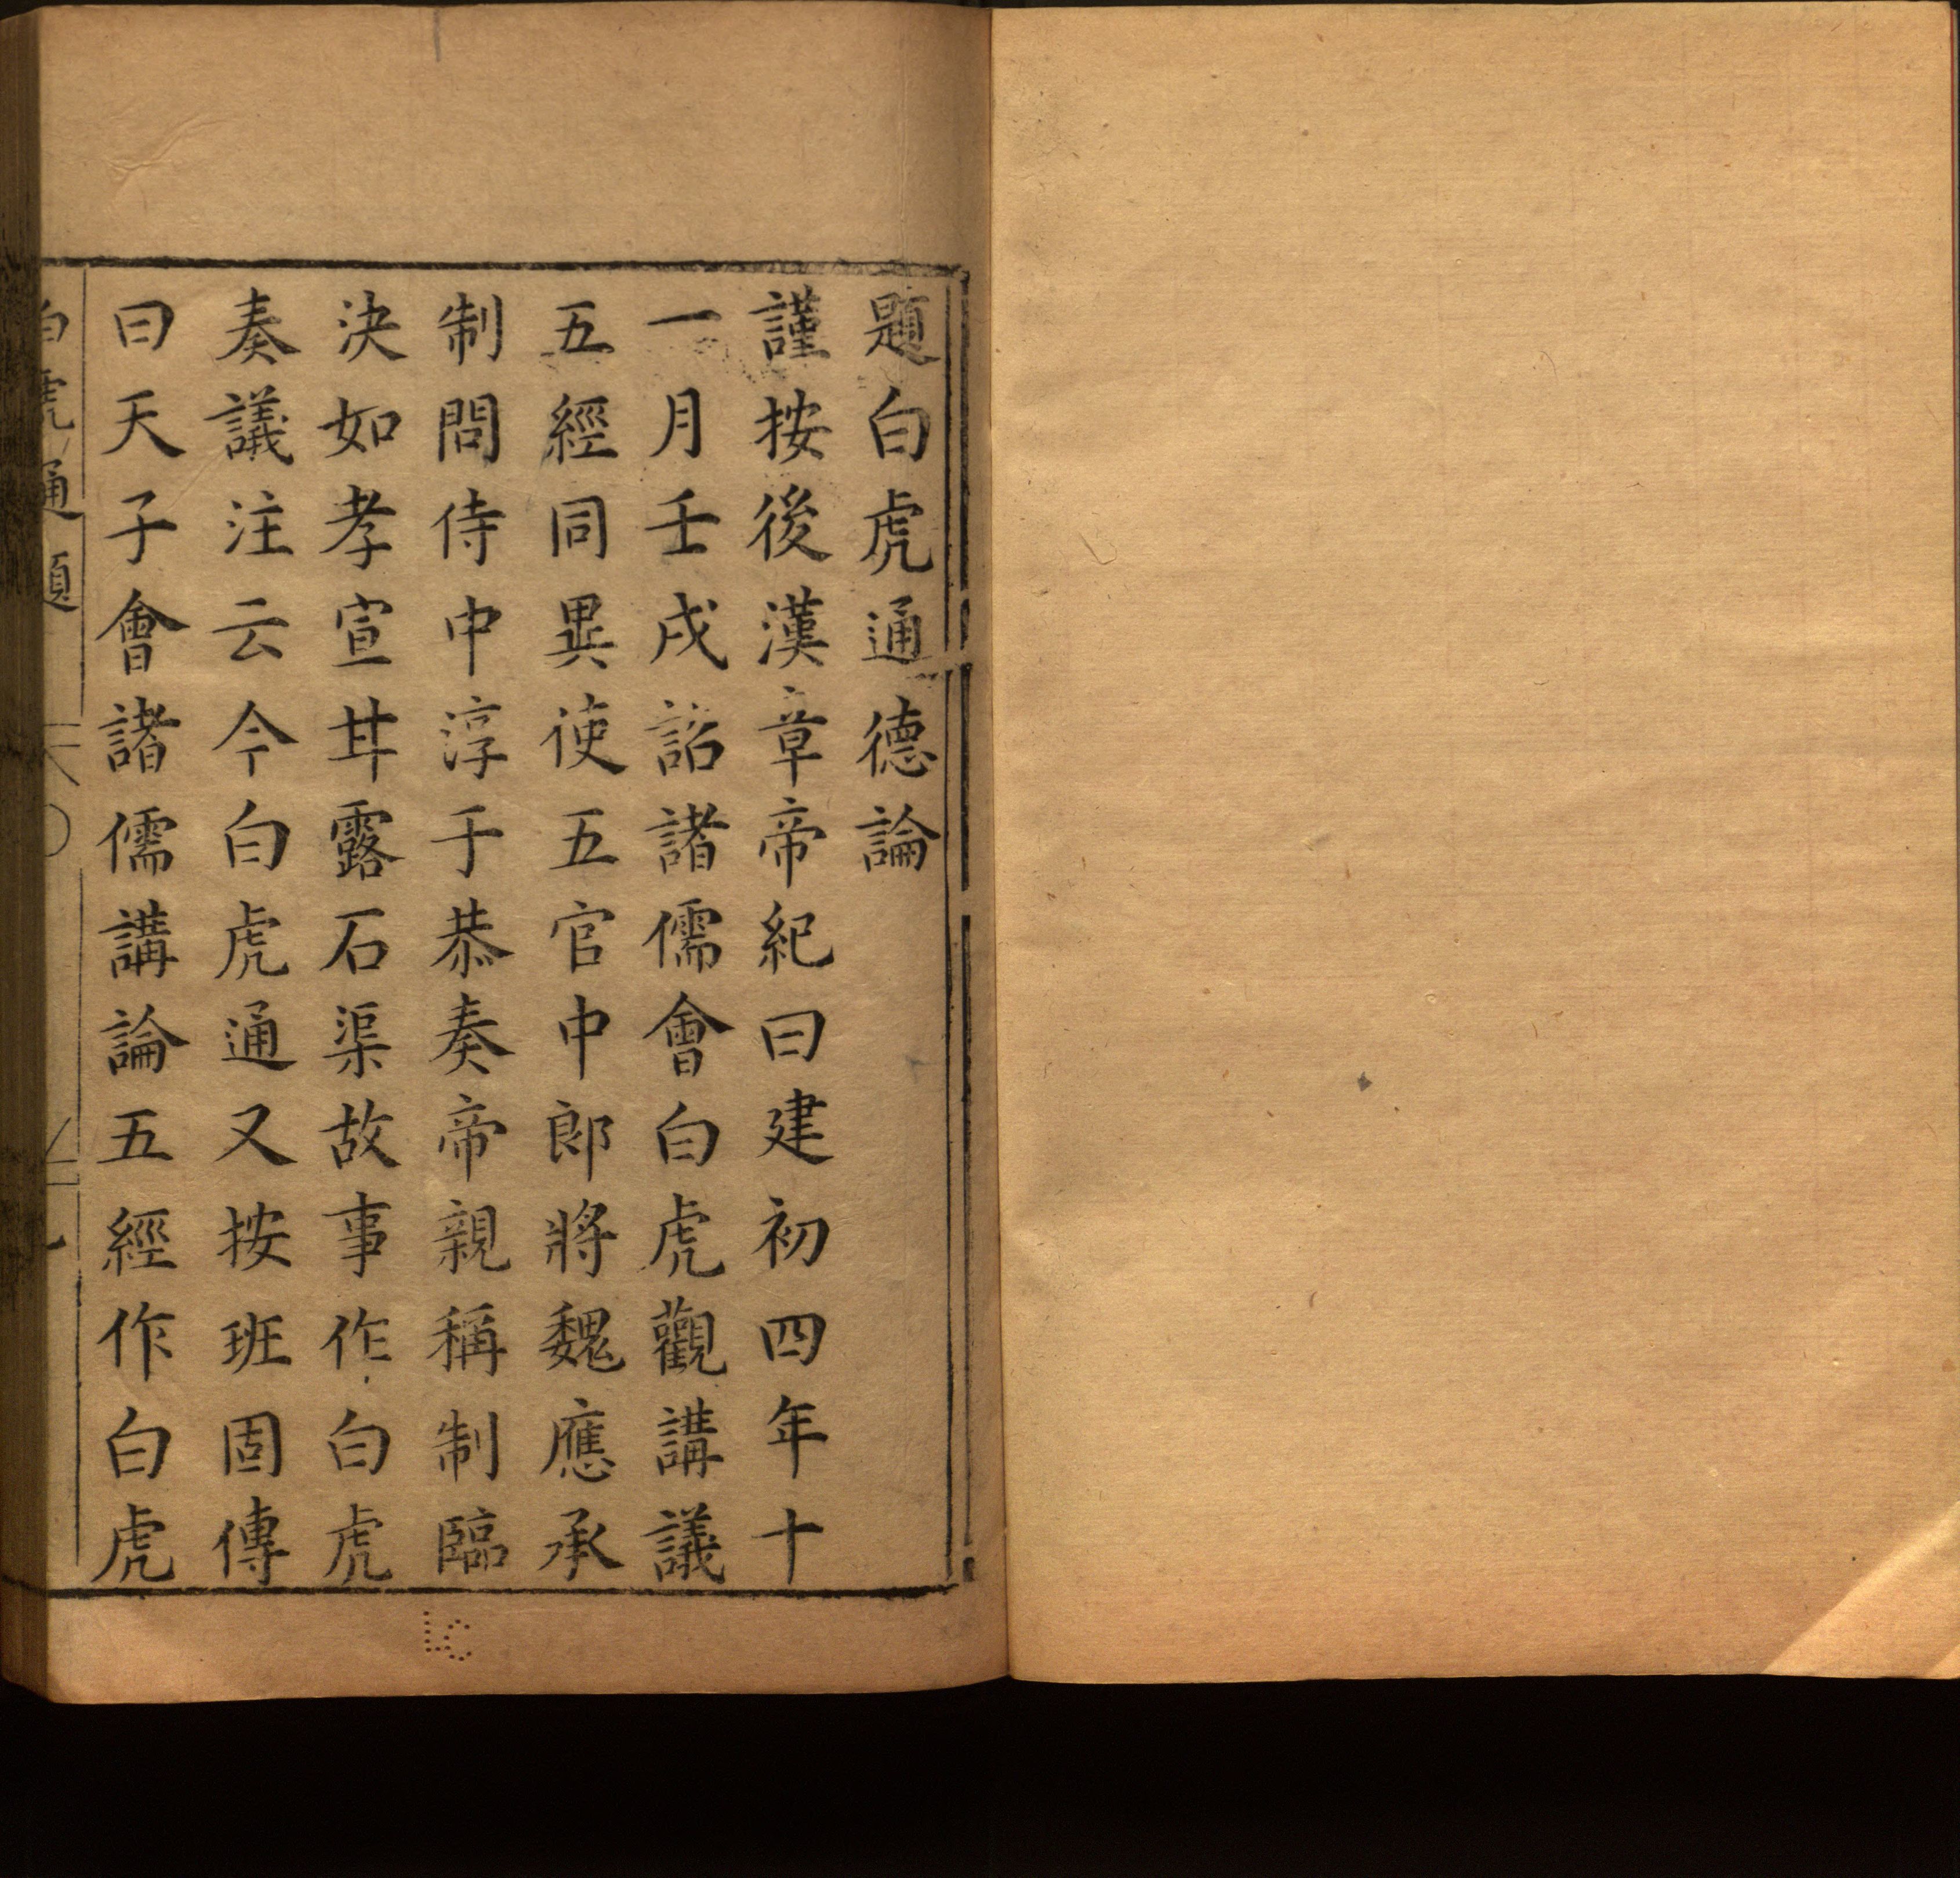 題白虎通德論
謹按後漢章帝紀曰建初四年十
一月壬戌詔諸儒會白虎觀講議
五經同異使五官中郎將魏應承
制問侍中淳于恭奏帝親稱制臨
決如孝宣甘露石渠故事作白虎
奏議注云今白虎通又按班固傳
曰天子會諸儒講論五經作白虎
白虎通 題
LC